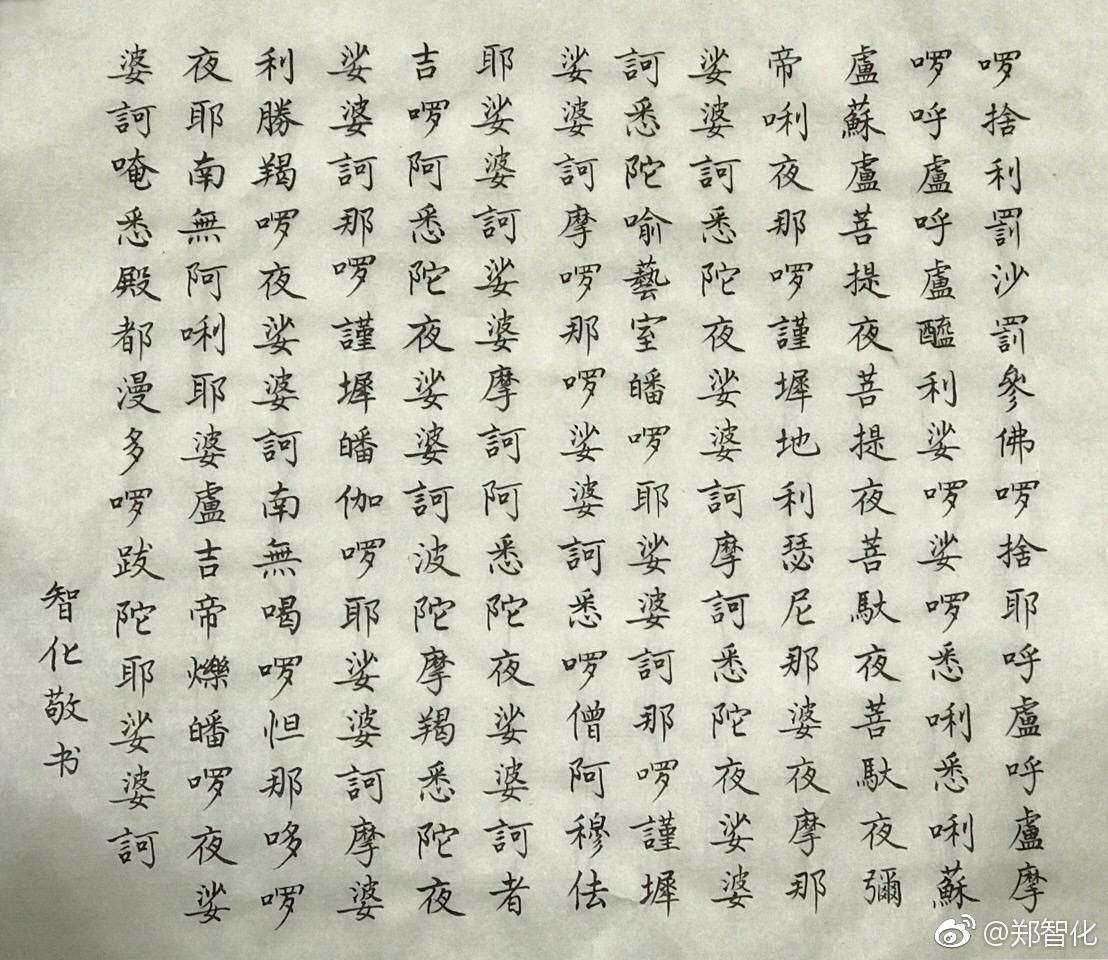 啰捨利罰沙罰參佛啰捨耶呼盧呼盧摩
啰呼盧呼盧醯利娑啰娑啰悉唎悉唎蘇
盧蘇盧菩提夜菩提夜菩馱夜菩馱夜彌
帝唎夜那啰謹墀地利瑟尼那婆夜摩那
娑婆訶悉陀夜娑婆訶摩訶悉陀夜娑婆
訶悉陀喻藝室皤啰耶娑婆訶那啰謹墀
娑婆訶摩啰那啰娑婆訶悉啰僧阿穆佉
耶娑婆訶娑婆摩訶阿悉陀夜娑婆訶者
吉啰阿悉陀夜娑婆訶波陀摩羯悉陀夜
娑婆訶那啰謹墀皤伽啰耶娑婆訶摩婆
利勝羯啰夜娑婆訶南無喝啰怛那哆啰
夜耶南無阿唎耶婆盧吉帝爍皤啰夜娑
婆訶唵悉殿都漫多啰跋陀耶娑婆訶
智化敬书
@郑智化